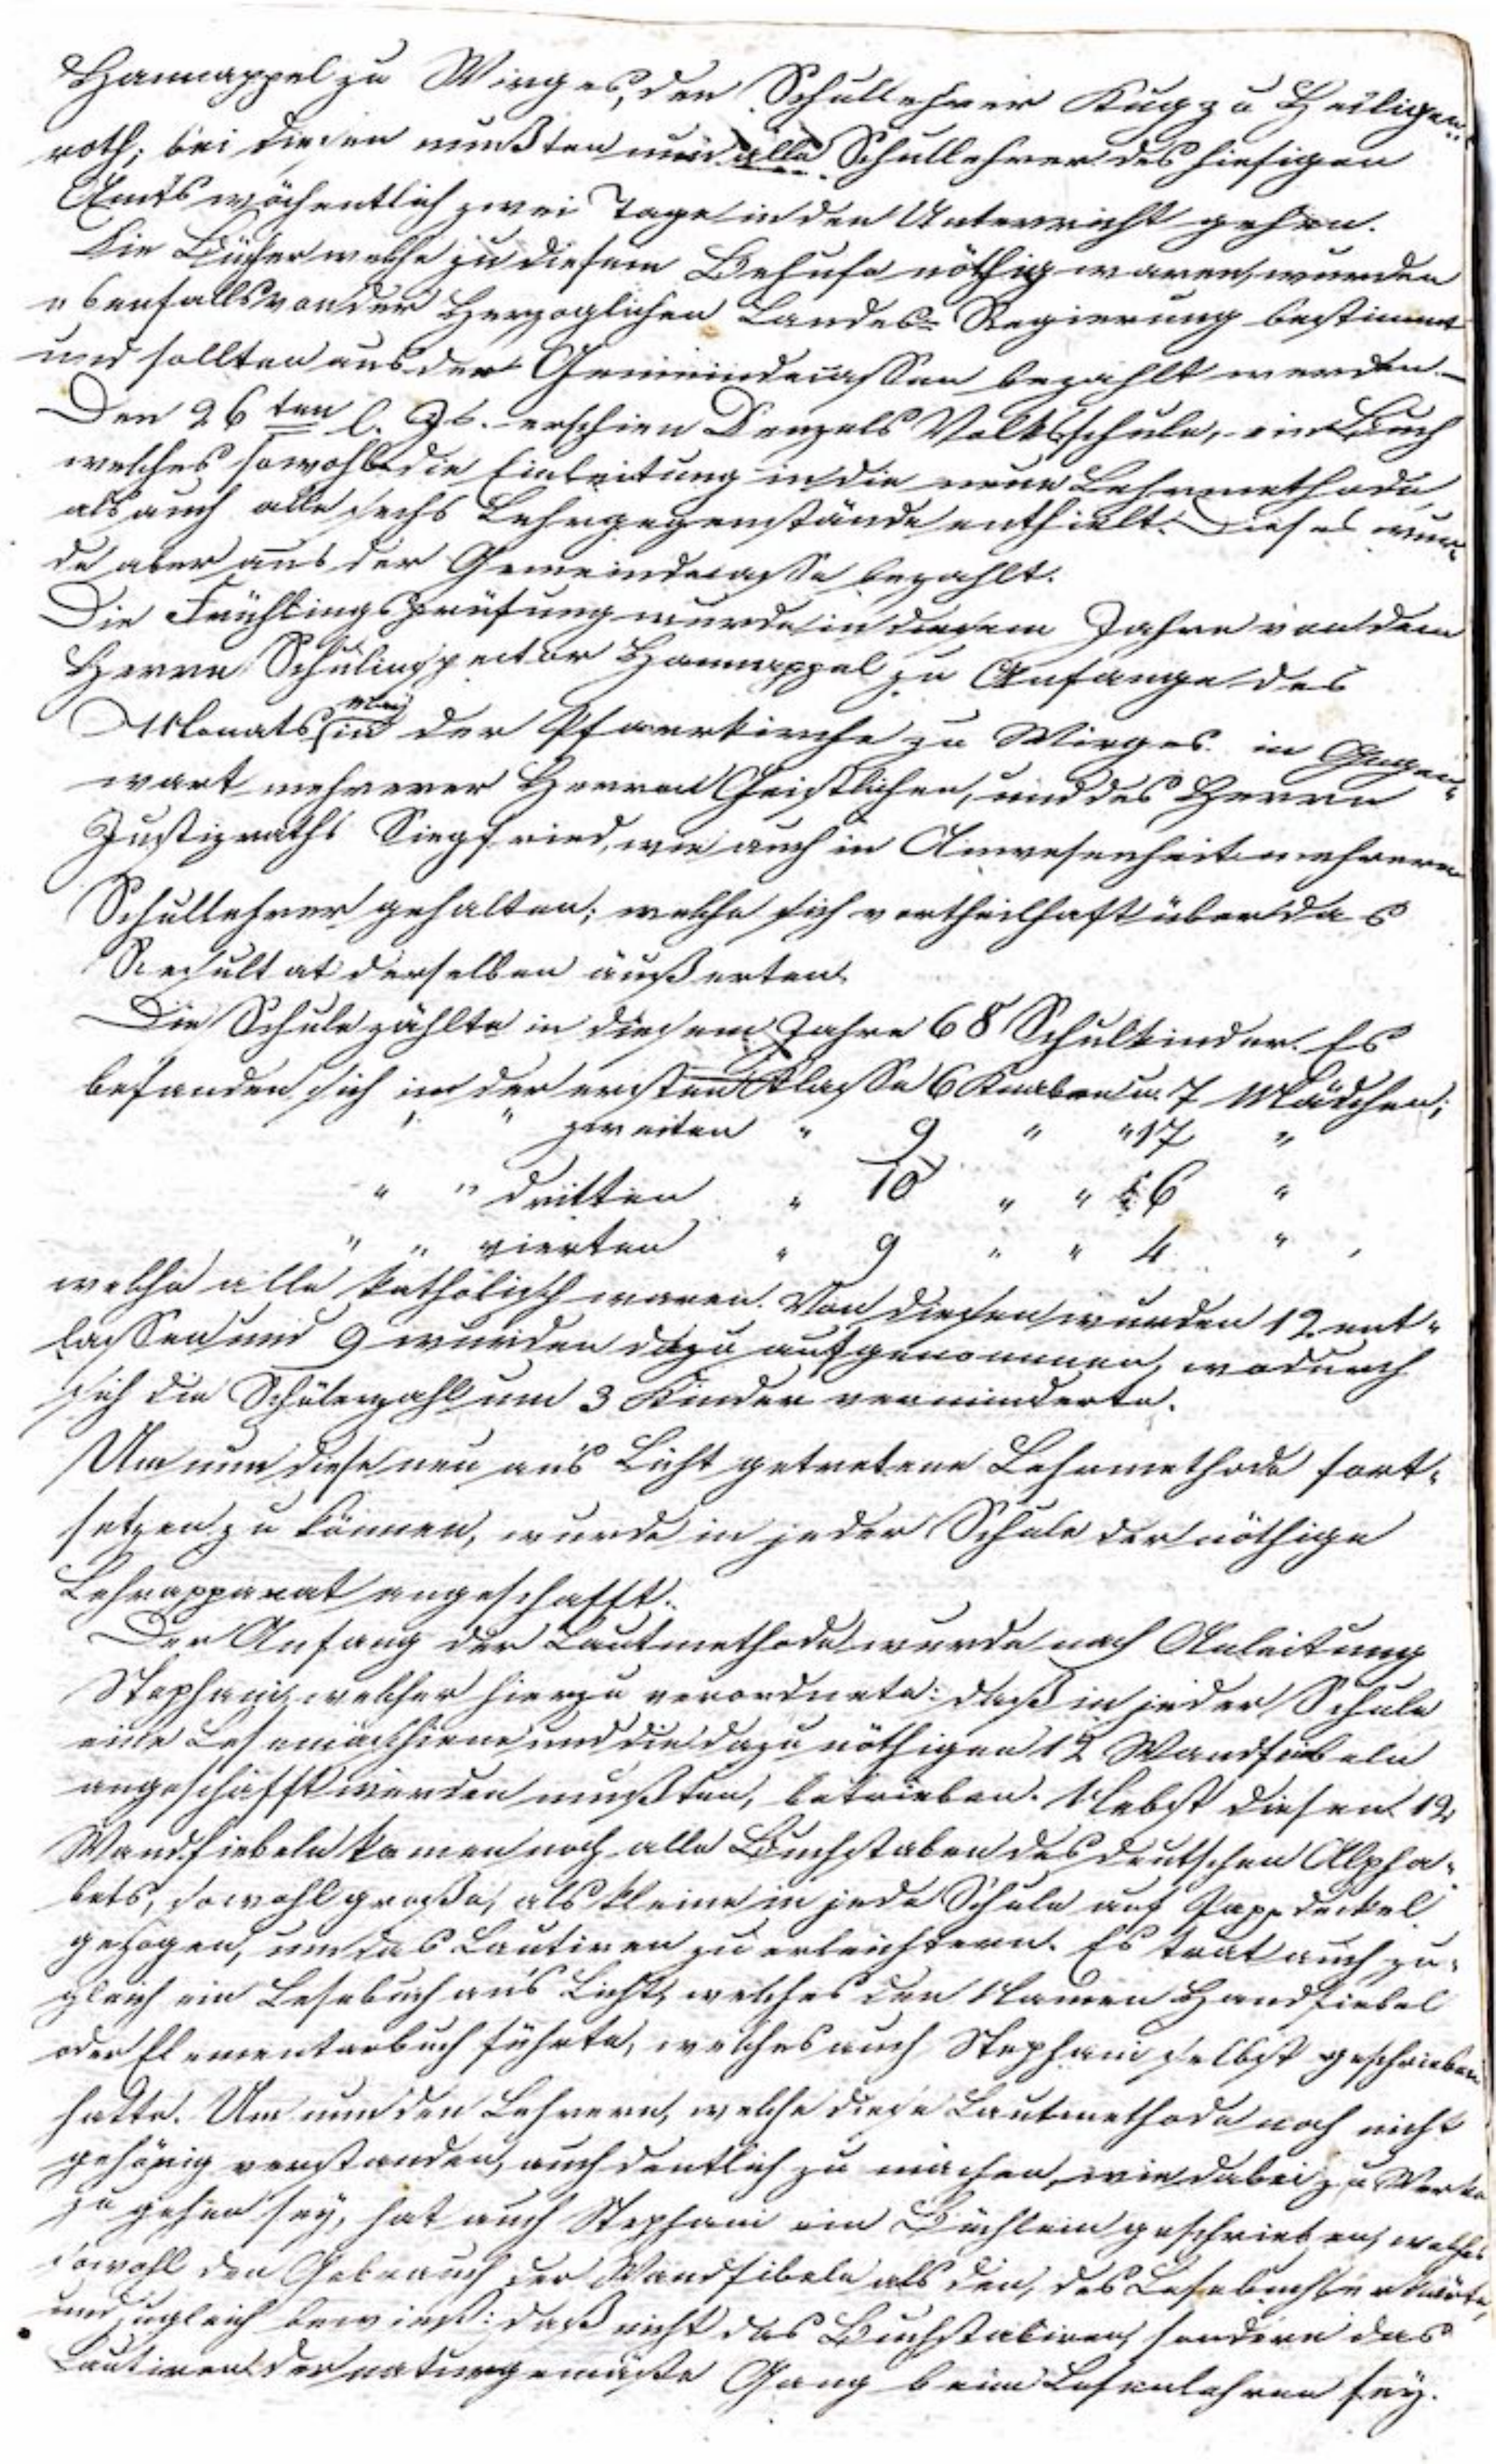 Hannappel zu Wirges, den Schullehrer Kug zu Heiligen-
roth; bei diesen mußten nun alle Schullehrer des hiesigen
Amts wöchentlich zwei Tage in den Unterricht gehen.
Die Bücher welche zu diesem Behufe nöthig waren, wurden
ebenfalls von der Herzoglichen Landes-Regierung bestimmt
und sollten aus der Gemeindecassen bezahlt werden.—
Den 26ten l. Js. erschien Denzels Volksschule, ein Buch
welches sowohl die Einleitung in die neue Lehrmethode,
als auch alle sechs Lehrgegenstände enthielt. Dieses wur-
de aber aus der Gemeindecasse bezahlt.
Die Frühlingsprüfung wurde in diesem Jahre von dem
Herrn Schulinspector Hannappel zu Anfange des
Monats May in der Pfarrkirche zu Wirges in Gegen-
wart mehrerer Herren Geistlichen, und des Herrn
Justizraths Siegfried, wie auch in Anwesenheit mehrerer
Schullehrer gehalten; welche sich vortheilhaft über das
Resultat derselben äußerten.
Die Schule zählte in diesem Jahre 68 Schulkinder. Es
befanden sich in der ersten Klasse 6 Knaben u. 7 Mädchen;
" " zweiten " 9 " " 17 "
" " dritten " 10 " " 6 "
" " vierten " 9 " " 4 " ,
welche alle katholisch waren. Von diesen wurden 12 ent-
lassen und 9 wurden dazu aufgenommen, wodurch
sich die Schülerzahl um 3 Kinder verminderte.
Um nun diese neu ans Licht getretene Lehrmethode fort-
setzen zu können, wurde in jeder Schule der nöthige
Lehrapparat angeschafft.
Der Anfang der Lautmethode wurde nach Anleitung
Stephani, welcher hierzu verordnete: daß in jeder Schule
eine Lesemaschiene und die dazu nöthigen 12 Wandfiebeln
angeschafft werden mußten, betrieben. Nebst diesen 12
Wandfiebeln kamen noch alle Buchstaben des deutschen Alpha-
bets, sowohl große, als kleine in jede Schule auf Pappdeckel
gezogen, um das Lautiren zu erleichtern. Es trat auch zu-
gleich ein Lesebuch ans Licht, welches den Namen Handfiebel
oder Elementarbuch führte, welches auch Stephani selbst geschrieben
hatte. Um nun den Lehrern, welche diese Lautmethode noch nicht
gehörig verstanden, auch deutlich zu machen, wie dabei zu Werke
zu gehen sey, hat auch Stephani ein Büchlein geschrieben, welches
sowohl den Gebrauch der Wandfibeln als den, des Lesebuchs erklärte,
und zugleich bewieß: daß nicht das Buchstabiren, sondern das
Lautiren der naturgemäße Gang beim Lesenlehren sey.